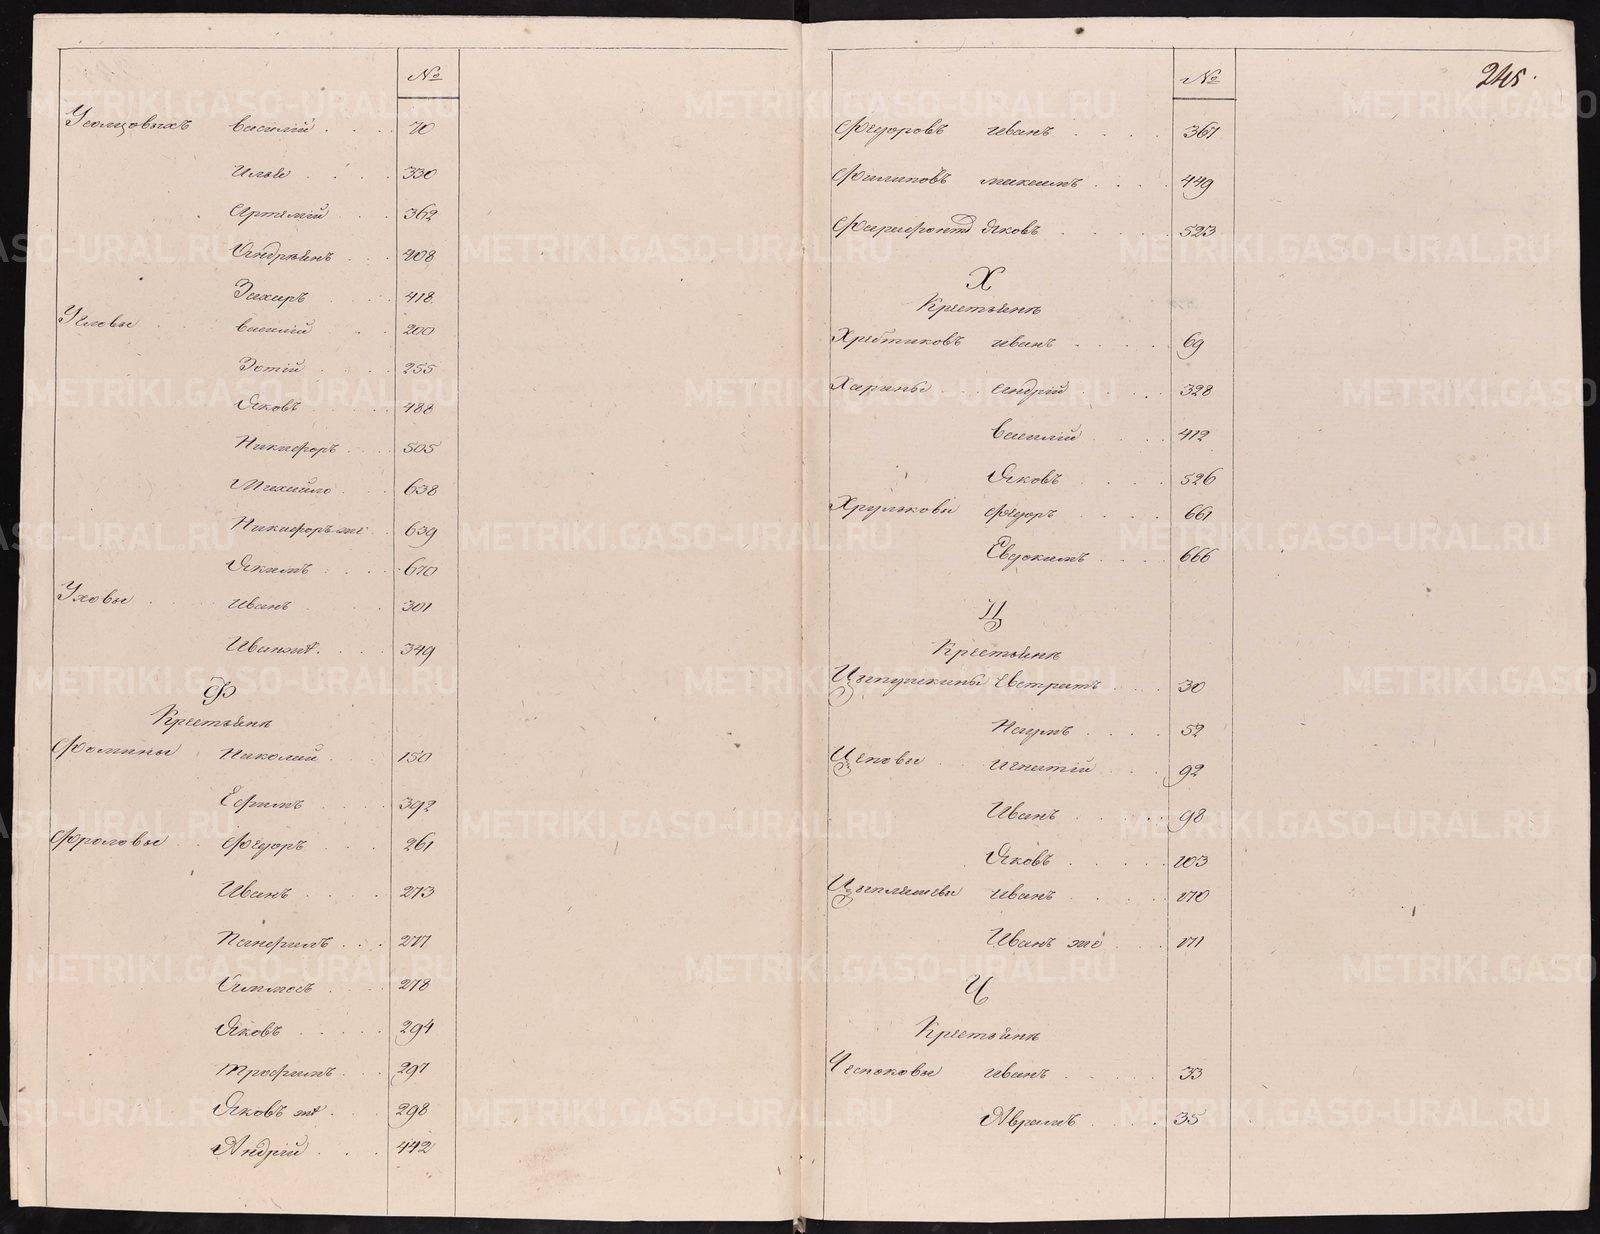 №
Усолцовыхъ Василий . . . 70
Илья . . . . 330
Артемий . . . 362
Андреянъ . . . 408
Захаръ . . . 418
Угловы . . Василий . . 200
Зотий . . . . 255
Яковъ . . . 488
Никифоръ . . . 505
Михайло . . . 638
Никифоръ же . 639
Якимъ . . . . 670
Уховы . . . Иванъ . . . 301
Иванъ же . . . 349
Ф
Крестьянъ
Фомины Николай . . . 150
Ефимъ . . . . 392
Фроловы . . Федоръ . . . . 261
Иванъ . . . . 273
Панфилъ . . . 277
Аммосъ . . . 278
Яковъ . . . . . 294
Трофимъ . . . 297
Яковъ же . . . 298
Андрий . . . 442
№
245.
Федоровъ Иванъ . . . . 367
Филиповъ Максимъ . . . . 449
Яковъ . . . . . 523
Х
Крестьянъ
Хребтиковъ Иванъ . . . . . 69
Харины . . Андрий . . . . 328
Василий . . . . 412
Яковъ . . . . 526
Хрульковы Федоръ . . . . 661
Евдокимъ . . . . 666
Ц
Крестьянъ
Цыпушкины Евстратъ . . . 30
Наумъ . . . . 52
Цеповы . Игнатий . . . 92
Иванъ . . . . . 98
Яковъ . . . . . 103
Цыпляшевы Иванъ . . . . . 170
Иванъ же . . . . 171
Ч
Крестьянъ
Чесноковы Иванъ . . . . . 33
Аврамъ . . . . 35
METRIKI.GASO-URAL.RU